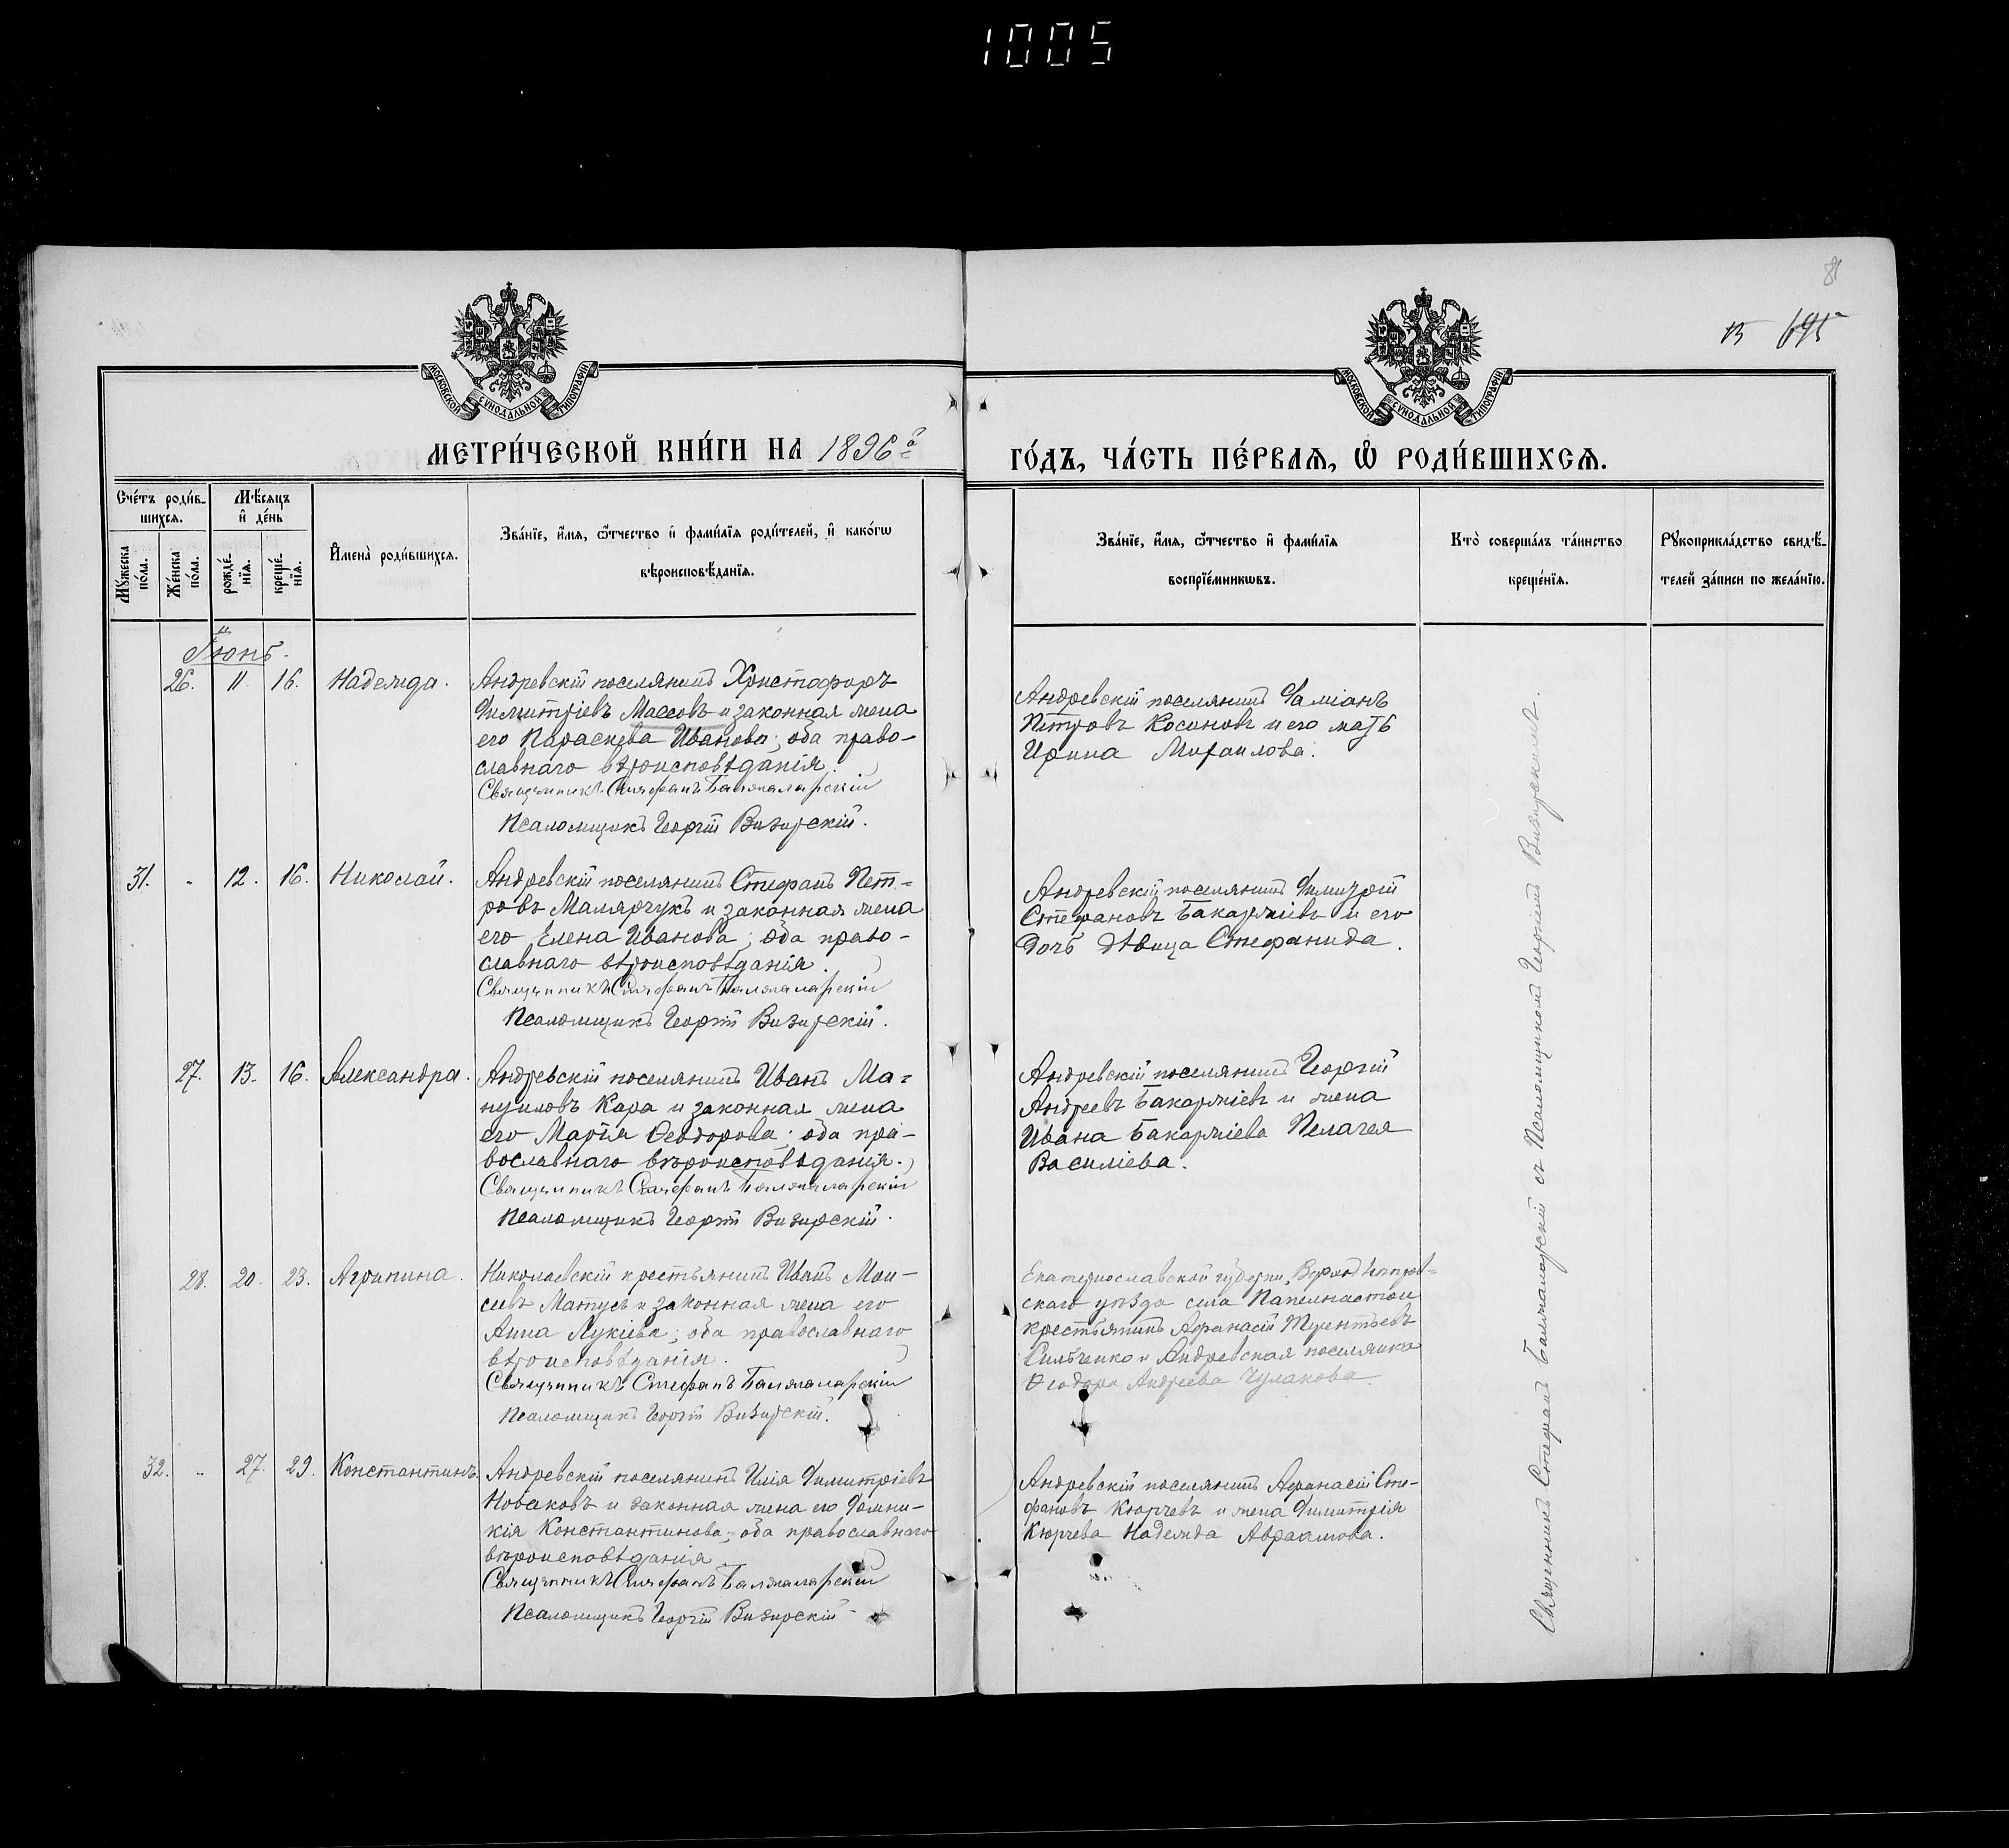 1005
81
15 695
МОСКОВСКОЙ СѴНОДАЛЬНОЙ ТИПОГРАФІИ
МОСКОВСКОЙ СѴНОДАЛЬНОЙ ТИПОГРАФІИ
МЕТРИ́ЧЕСКОЙ КНИ́ГИ НА 1896й
ГО́ДЪ, ЧА́СТЬ ПЕ́РВАЯ, Ѡ҆ РОДИ́ВШИХСЯ.
Сче́тъ роди́в-
шихся.
Мꙋ́жеска по́ла.
Же́нска по́ла.
Мѣ́сяцъ
и҆ де́нь
рожде́-
нїя.
креще́-
нїя.
И҆мена̀ роди́вшихся.
Зва́нїе, и҆́мя, ѻ҆́тчество и҆ фами́лїя роди́телей, и҆ како́гѡ
вѣроисповѣ́данїя.
Зва́нїе, и҆́мя, ѻ҆́тчество и҆ фами́лїя
воспрїе́мникѡвъ.
Кто̀ соверша́лъ та́инство
креще́нїя.
Рꙋкоприкла́дство свидѣ́-
телей за́писи по жела́нїю.
Іюнь.
26. 11. 16. Надежда.
Андревскій поселянинъ Христофоръ
Димитріевъ Массовъ и законная жена
его Параскева Иванова; оба право-
славнаго вѣроисповѣданія.
Священникъ Стефанъ Балжаларскій
Псаломщикъ Георгій Визирскій.
Андревскій поселянинъ Даміанъ
Петровъ Косиновъ и его мать
Ирина Михаилова.
31. " 12. 16. Николай.
Андревскій поселянинъ Стефанъ Пет-
ровъ Малярчукъ и законная жена
его Елена Иванова; оба право-
славнаго вѣроисповѣданія.
Священникъ Стефанъ Балжаларскій
Псаломщикъ Георгій Визирскій.
Андревскій поселянинъ Димитрій
Стефановъ Бакаржіевъ и его
дочь дѣвица Стефанида.
27. 13. 16. Александра.
Андревскій поселянинъ Иванъ Ма-
нуиловъ Кара и законная жена
его Марія Ѳеодорова; оба пра-
вославнаго вѣроисповѣданія.
Священникъ Стефанъ Балжаларскій
Псаломщикъ Георгій Визирскій.
Андревскій поселянинъ Георгій
Андреевъ Бакаржіевъ и жена
Ивана Бакаржіева Пелагея
Василіева.
28. 20. 23. Агрипина.
Николаевскій крестьянинъ Иванъ Мои-
сеевъ Матусъ и законная жена его
Анна Лукіева; оба православнаго
вѣроисповѣданія.
Священникъ Стефанъ Балжаларскій
Псаломщикъ Георгій Визирскій.
Екатеринославской губерніи, Верходнѣпров-
скаго уѣзда села Папелнастои
крестьянинъ Афанасій Терентьевъ
Сильченко и Андревская поселянка
Ѳеодора Андреева Чулакова.
32. " 27. 29. Константинъ.
Андревскій поселянинъ Илія Димитріевъ
Новаковъ и законная жена его Домни-
кія Константинова; оба православнаго
вѣроисповѣданія
Священникъ Стефанъ Балжаларскій
Псаломщикъ Георгій Визирскій
Андревскій поселянинъ Афанасій Сте-
фановъ Кюрчевъ и жена Димитрія
Кюрчева Надежда Авраамова.
Священникъ Стефанъ Балжаларскій съ Псаломщикомъ Георгіемъ Визирскимъ.